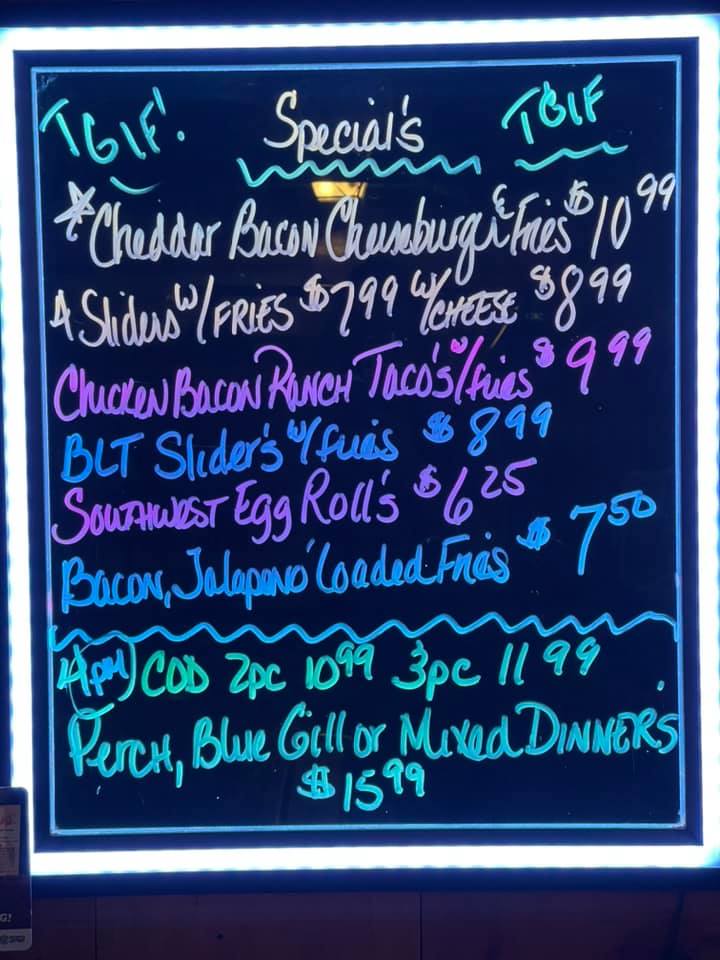 TGIF! Special's TGIF
*Cheddar Bacon Cheeseburger & Fries $10 99
4 Sliders w/FRIES $7 99 w/CHEESE $8 99
CHICKEN BACON RANCH TACO'S w/fries $9 99
BLT Slider's w/fries $8 99
SOUTHWEST Egg Roll's $6 25
Bacon, Jalapeno Loaded Fries $7 50
4pm) COD 2pc 10 99 3pc 11 99
PERCH, Blue Gill or Mixed DINNERS
$15 99
G!